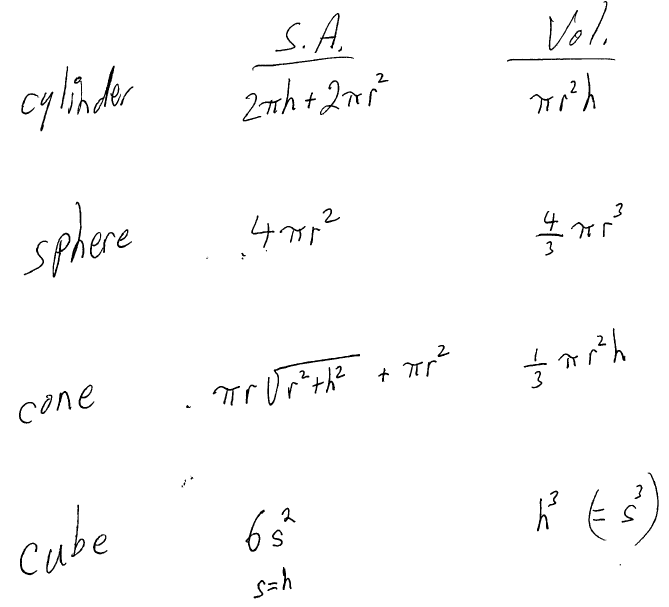 S.A. Vol.
cylinder 2πh + 2πr² πr²h
sphere 4πr² 4/3 πr³
cone πr√(r²+h²) + πr² 1/3 πr²h
cube 6s² h³ (= s³)
s=h